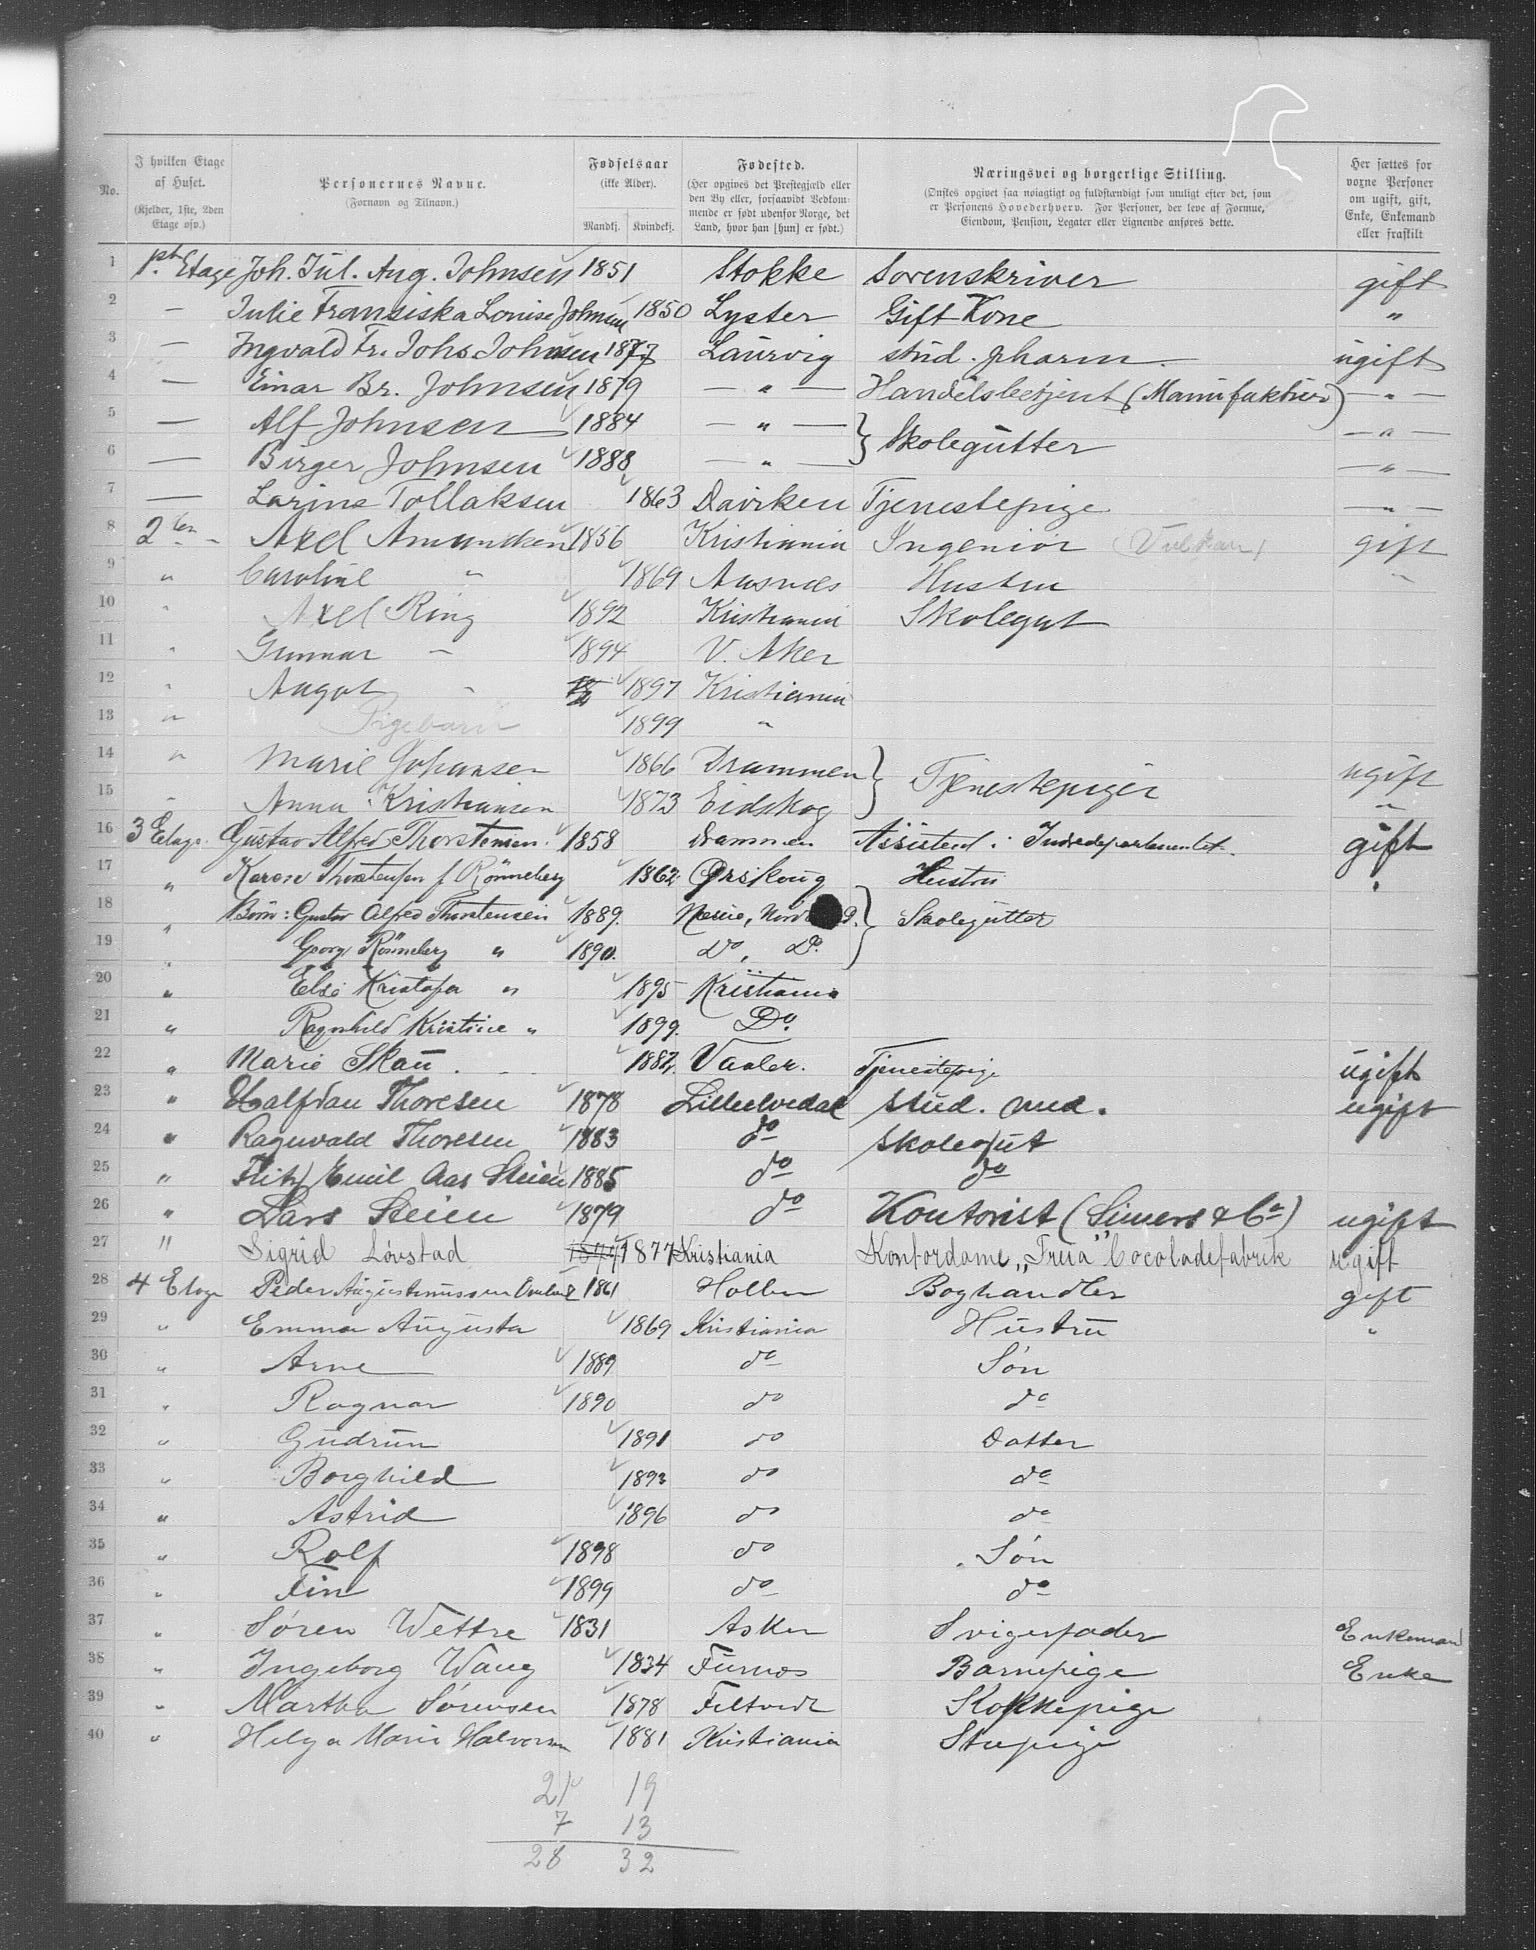 No. I hvilken Etage af Huset. (Kjelder, 1ste, 2den Etage osv.) Personernes Navne. (Fornavn og Tilnavn.) Fødselsaar (ikke Alder). Mandkj. Kvindekj. Fødested. (Her opgives det Prestegjæld eller den By eller, forsaavidt Vedkommende er født udenfor Norge, det Land, hvor han [hun] er født.) Næringsvei og borgerlige Stilling. (Ønskes opgivet saa nøiagtigt og fuldstændigt som muligt efter det, som er Personens Hovederhverv. For Personer, der leve af Formue, Eiendom, Pension, Legater eller Lignende anføres dette. Her sættes for voxne Personer om ugift, gift, Enke, Enkemand eller fraskilt
1 1st. Etage Joh. Jul. Aug. Johnsen 1851 Stokke Sorenskriver gift
2 — Julie Fransiska Louise Johnsen 1850 Lyster Gift Kone "
3 — Ingvald Fr. Johs Johnsen 1877 Laurvig stud. pharm. ugift
4 — Einar Br. Johnsen 1879 — " — Handelsbetjent (Manufaktur) — " —
5 — Alf Johnsen 1884 — " — } Skolegutter — " —
6 — Birger Johnsen 1888 — " — — " —
7 — Larine Tollaksen 1863 Tjenestepige — " —
8 2den - Axel Amundsen 1856 Kristiania Ingeniør (Vulkan) gift
9 " Caroline " 1869 Aasnes Hustru "
10 " Axel Ring 1892 Kristiania Skolegut
11 " Gunnar — 1894 V. Aker
12 " Aagot - 1897 Kristiania
13 " Pigebarn 1899 "
14 " Marie Johansen 1866 Drammen } Tjenestepiger ugift
15 " Anna Kristiansen 1873 Eidskog "
16 3 Etage. Gustav Alfred Thorstensen. 1858 Drammen Assistent i Indredepartementet. gift
17 " Karen Thorstensen f. Rönneberg 1862 Ørskoug Hustru "
18 " Börn: Gustav Alfred Thorstensen 1889. } Skolegutter
19 " Georg Rönneberg " 1890. Do, Do.
20 " Else Kristofa " 1895 Kristiania
21 " Ragnhild Kristine " 1899. Do.
22 " Marie Skau . - - 1882. Vaaler. Tjenestepige ugift
23 " Halfdan Thoresen 1878 Lilleelvedal stud. med. ugift
24 " Ragnvald Thoresen 1883 do skolegut
25 " Fritz Emil Aas Steien 1885 do do
26 " Lars Steien 1879 do Kontorist (Simers & Co) ugift
27 " Sigrid Løvstad 1877 Kristiania Kontordame „Freia" Cocoladefabrik ugift
28 4 Etage Peder Augustinussen 1861 Holleen Boghandler gift
29 " Emma Augusta 1869 Kristiania Hustru "
30 " Arne 1889 do Søn
31 " Ragnar 1890 do do
32 " Gudrun 1891 do Datter
33 " Borghild 1893 do do
34 " Astrid 1896 do do
35 " Rolf 1898 do Søn
36 " Fin 1899 do do
37 " Søren Wettre 1831 Asker Svigerfader Enkemand
38 " Ingeborg Wang 1834 Furnæs Barnepige Enke
39 " Martha Sørensen 1878 Filtvedt Kokkepige
40 " Helga Marie Halvorsen 1881 Kristiania Stuepige
21 19
7 13
28 32